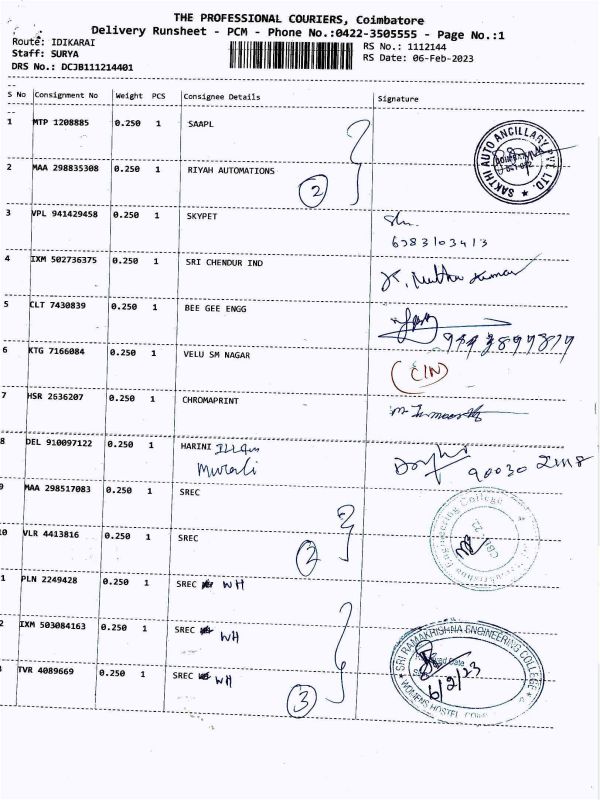 THE PROFESSIONAL COURIERS, Coimbatore
Delivery Runsheet - PCM - Phone No.:0422-3505555 - Page No.:1
Route: IDIKARAI
Staff: SURYA
DRS No.: DCJB111214401
RS No.: 1112144
RS Date: 06-Feb-2023
S No Consignment No Weight PCS Consignee Details Signature
1 MTP 1208885 0.250 1 SAAPL
SAKTHI AUTO ANCILLARY PVT. LTD.
2 MAA 298835308 0.250 1 RIYAH AUTOMATIONS
2
3 VPL 941429458 0.250 1 SKYPET
6383103413
4 IXM 502736375 0.250 1 SRI CHENDUR IND
K. Muthu Kumar
5 CLT 7430839 0.250 1 BEE GEE ENGG
6 KTG 7166084 0.250 1 VELU SM NAGAR
CIN
7 HSR 2636207 0.250 1 CHROMAPRINT
8 DEL 910097122 0.250 1 HARINI
Murali
90030
9 MAA 298517083 0.250 1 SREC
10 VLR 4413816 0.250 1 SREC
2
1 PLN 2249428 0.250 1 SREC WH
2 IXM 503084163 0.250 1 SREC WH
TVR 4089669 0.250 1 SREC WH
3
SRI RAMAKRISHNA ENGINEERING COLLEGE
6/2/23
WOMENS HOSTEL